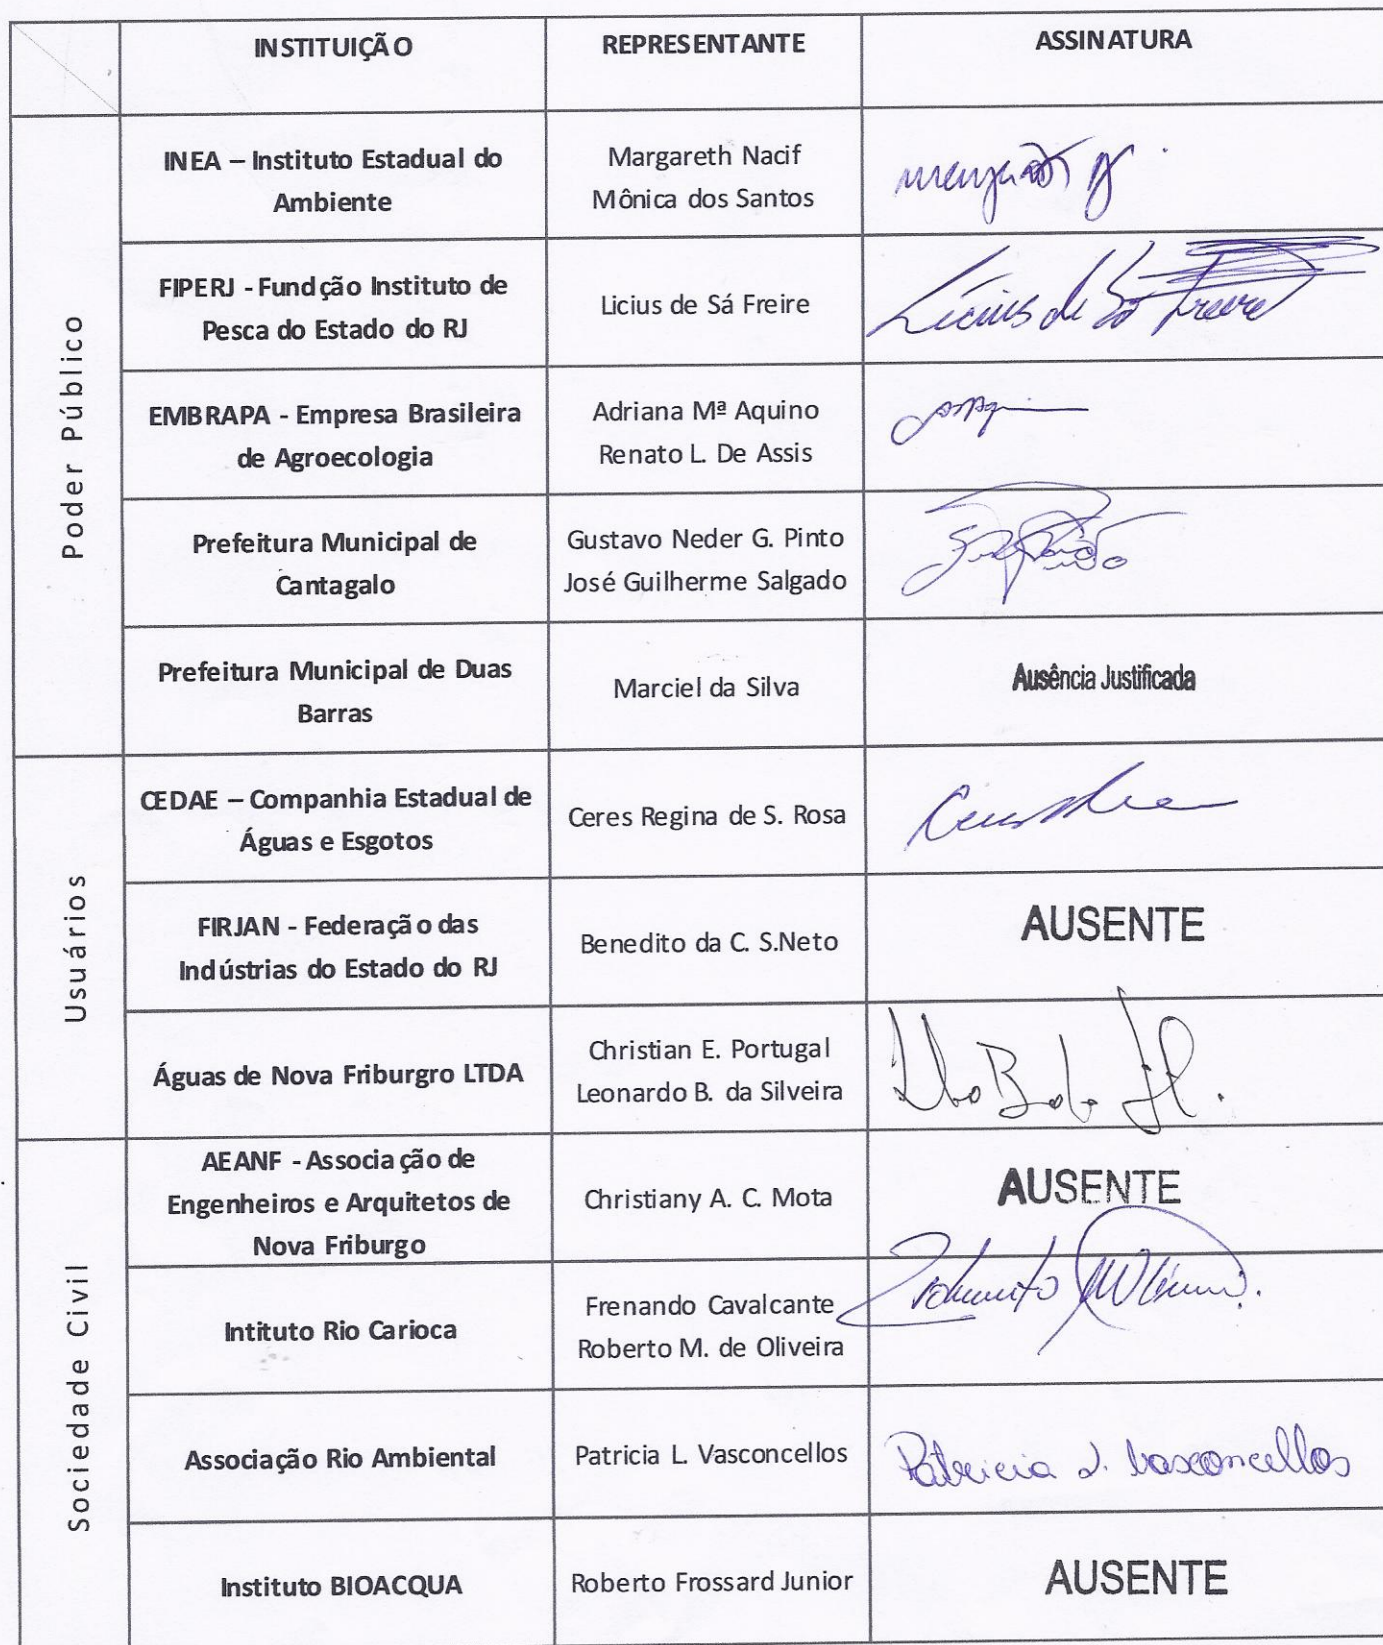 INSTITUIÇÃO
REPRESENTANTE
ASSINATURA
Poder Público
INEA – Instituto Estadual do
Ambiente
Margareth Nacif
Mônica dos Santos
FIPERJ - Fundção Instituto de
Pesca do Estado do RJ
Licius de Sá Freire
Licius de Sá Freire
EMBRAPA - Empresa Brasileira
de Agroecologia
Adriana Mª Aquino
Renato L. De Assis
Prefeitura Municipal de
Cantagalo
Gustavo Neder G. Pinto
José Guilherme Salgado
Prefeitura Municipal de Duas
Barras
Marciel da Silva
Ausência Justificada
Usuários
CEDAE – Companhia Estadual de
Águas e Esgotos
Ceres Regina de S. Rosa
FIRJAN - Federação das
Indústrias do Estado do RJ
Benedito da C. S.Neto
AUSENTE
Águas de Nova Friburgro LTDA
Christian E. Portugal
Leonardo B. da Silveira
Sociedade Civil
AEANF - Associação de
Engenheiros e Arquitetos de
Nova Friburgo
Christiany A. C. Mota
AUSENTE
Intituto Rio Carioca
Frenando Cavalcante
Roberto M. de Oliveira
Associação Rio Ambiental
Patricia L. Vasconcellos
Patricia L. Vasconcellos
Instituto BIOACQUA
Roberto Frossard Junior
AUSENTE